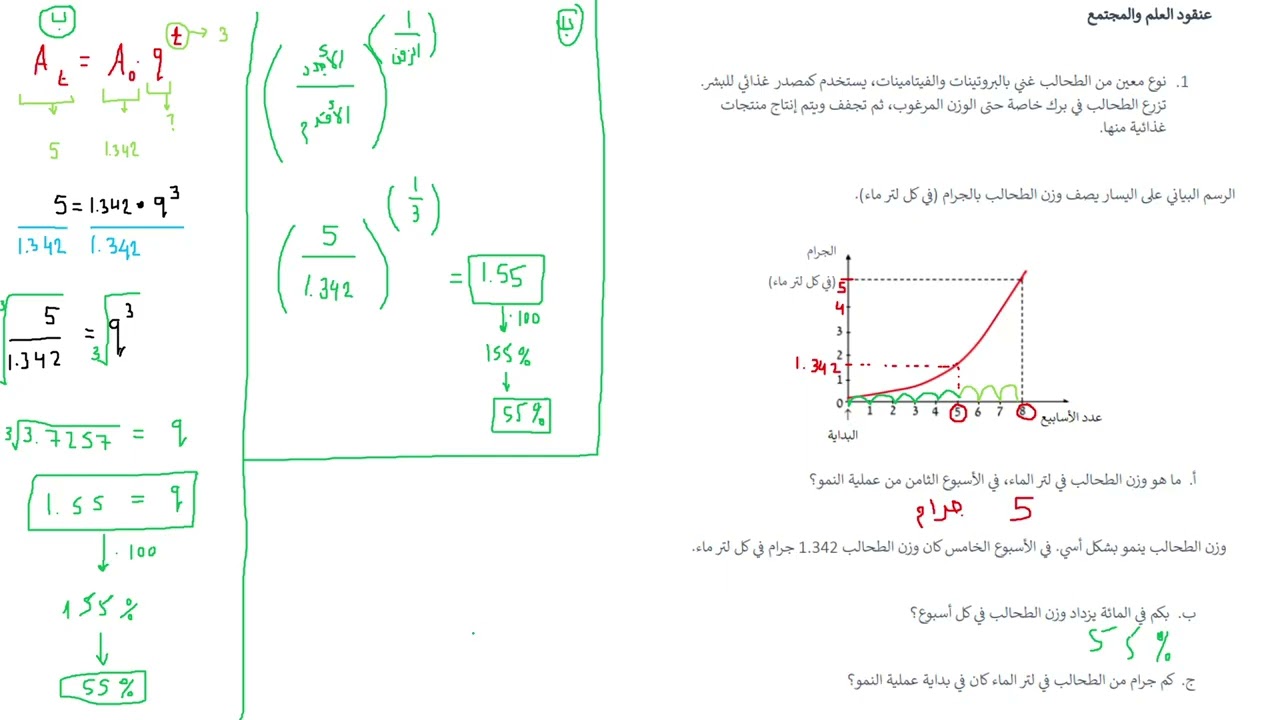 عنقود العلم والمجتمع
1. نوع معين من الطحالب غني بالبروتينات والفيتامينات، يستخدم كمصدر غذائي للبشر.
تزرع الطحالب في برك خاصة حتى الوزن المرغوب، ثم تجفف ويتم إنتاج منتجات
غذائية منها.
الرسم البياني على اليسار يصف وزن الطحالب بالجرام (في كل لتر ماء).
الجرام
(في كل لتر ماء)
5
4
3
2
1.342
1
0
1 2 3 4 5 6 7 8
عدد الأسابيع
البداية
أ. ما هو وزن الطحالب في لتر الماء، في الأسبوع الثامن من عملية النمو؟
5 جرام
وزن الطحالب ينمو بشكل أسي. في الأسبوع الخامس كان وزن الطحالب 1.342 جرام في كل لتر ماء.
ب. بكم في المائة يزداد وزن الطحالب في كل أسبوع؟
55%
ج. كم جرام من الطحالب في لتر الماء كان في بداية عملية النمو؟
ب
(
1
الزمن
)
(
5
1.342
)
(
1
3
)
= 1.55
· 100
155%
55%
ب
t → 3
A t = A 0 · q
?
5 1.342
5 = 1.342 · q 3
1.342 1.342
3√ 5 / 1.342 = 3√ q 3
3√ 3.7257 = q
1.55 = q
· 100
155%
55%